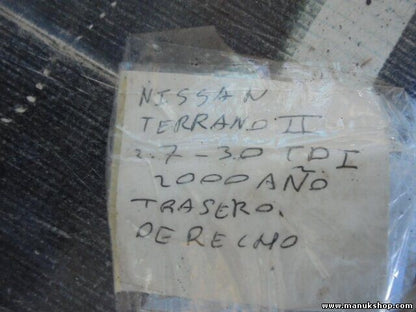 NISSAN
TERRANO II
2.7-3.0 TDI
2000 AÑO
TRASERO.
DERECHO
www.manukshop.com